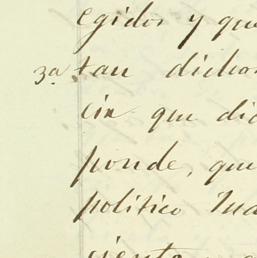 egidos y que
3a tan dichos
cia que dic
ponde, que
politico Jua
ciento